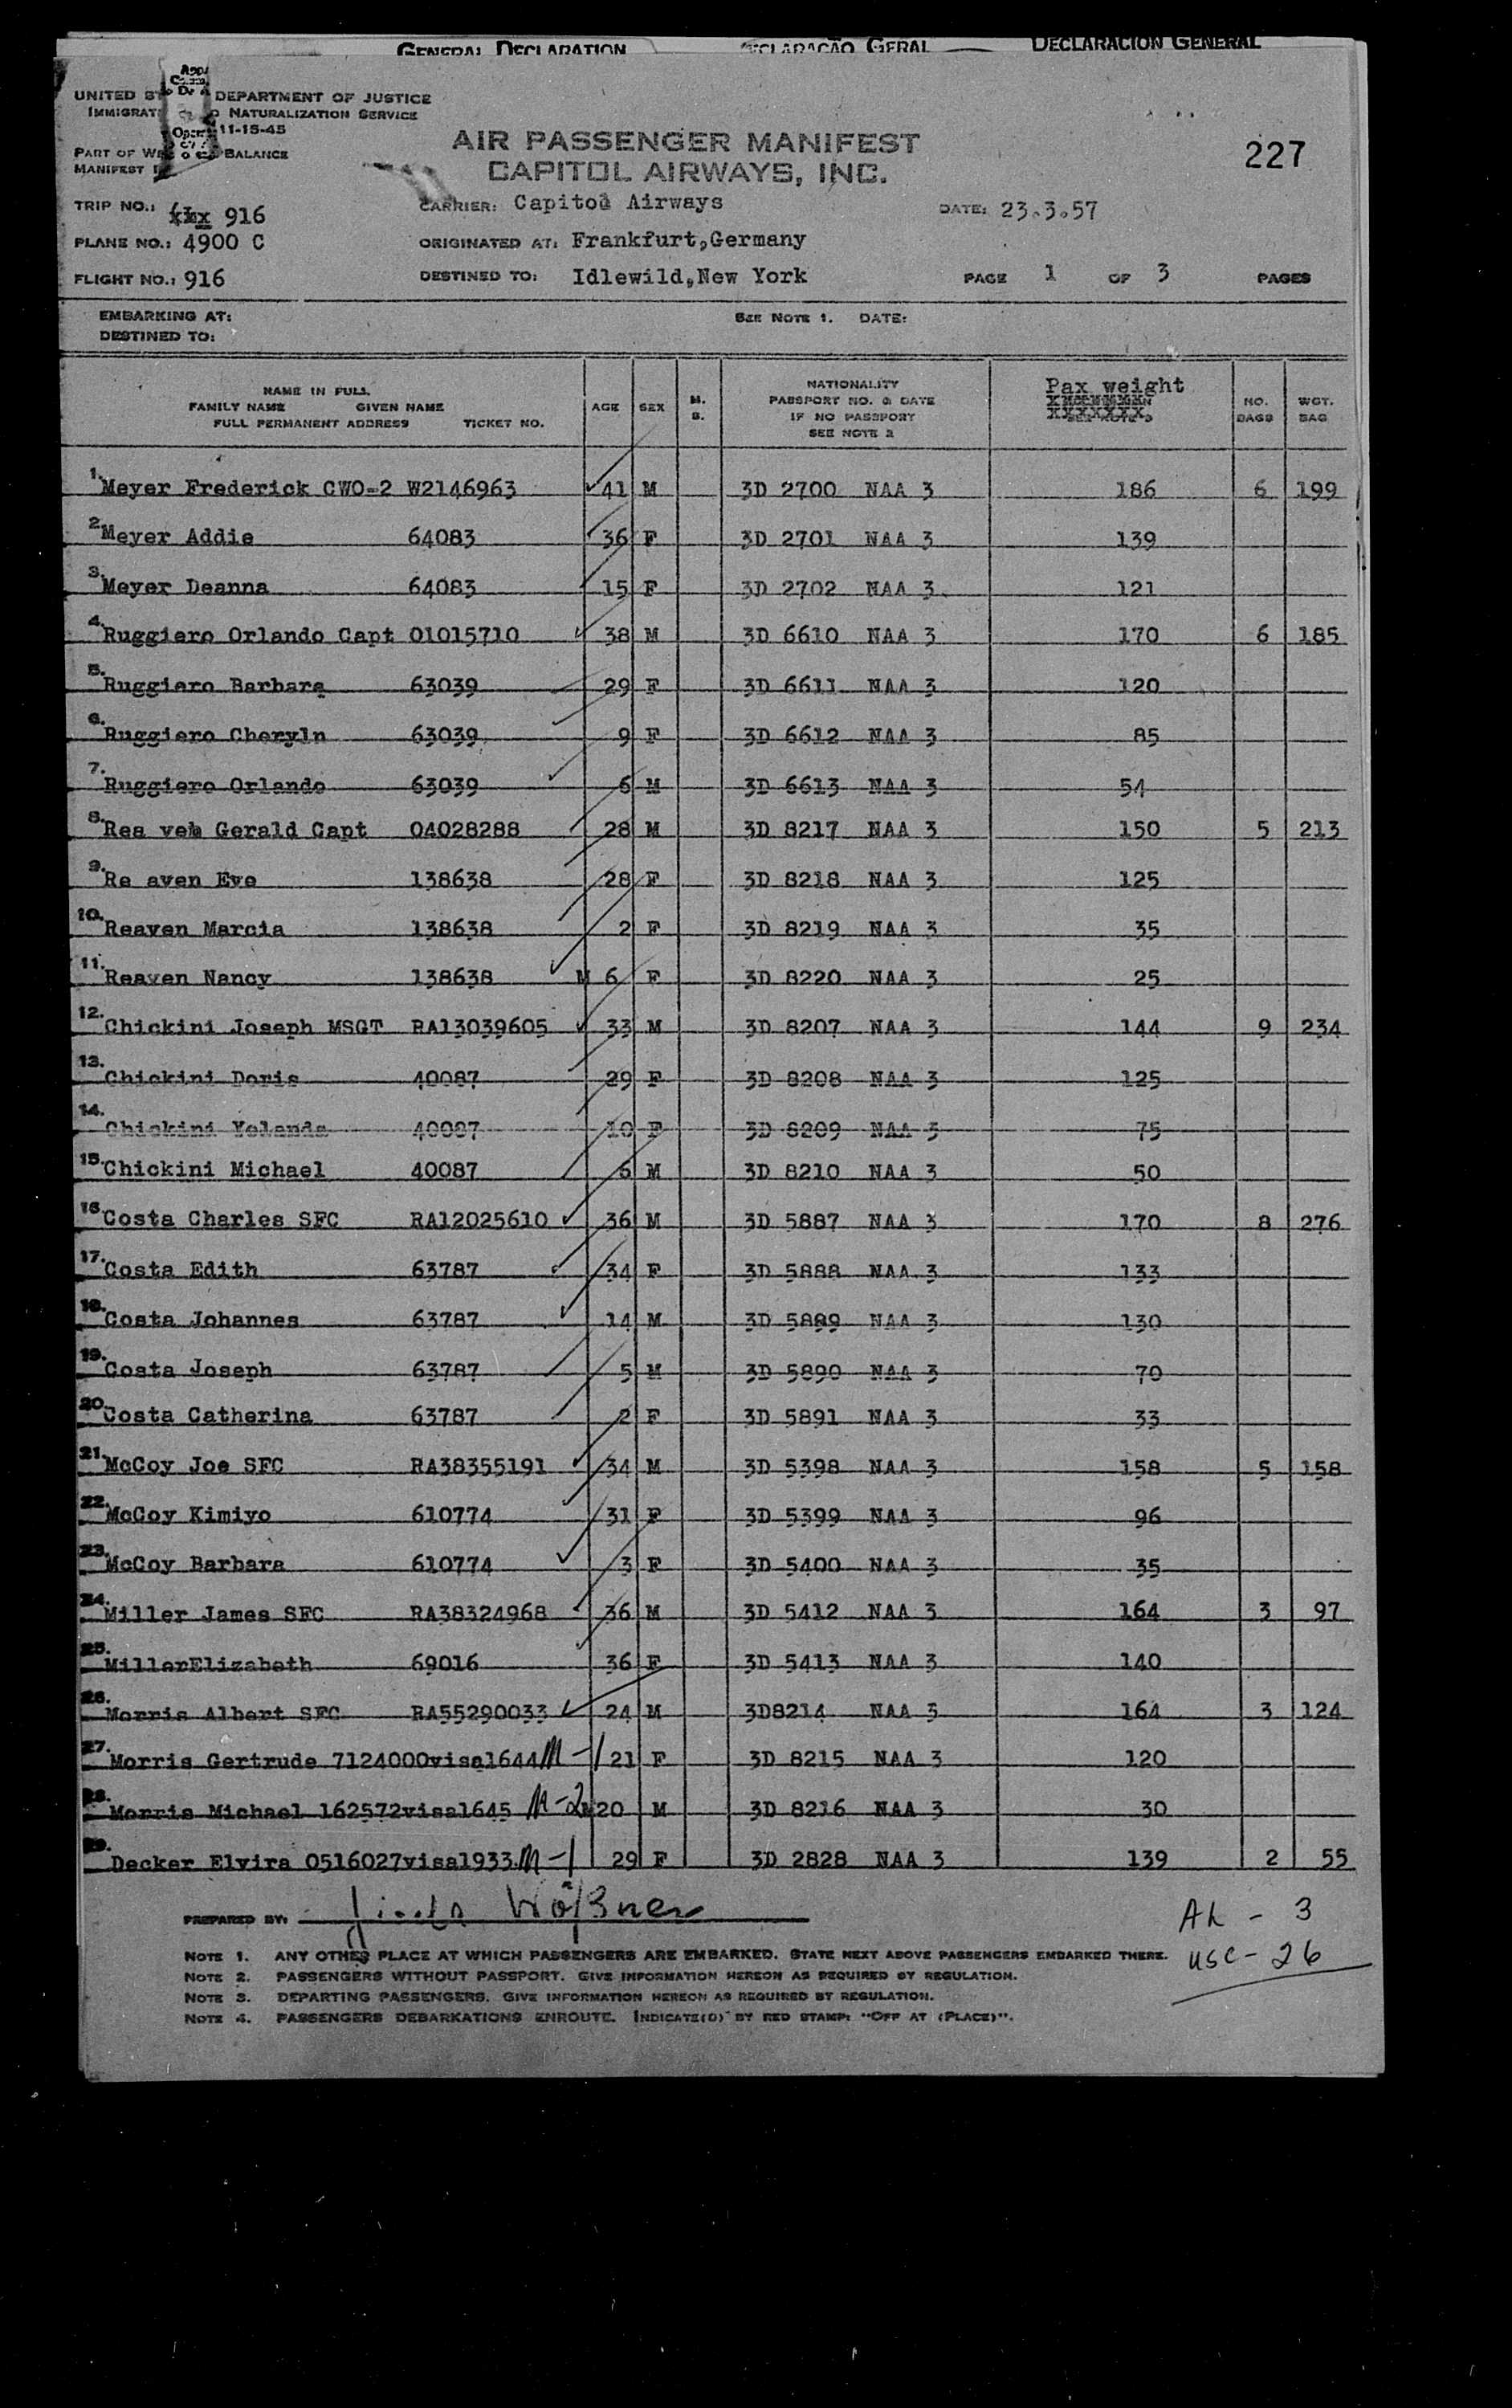 GENERAL DECLARATION DECLARAÇÃO GERAL DECLARACION GENERAL
UNITED DEPARTMENT OF JUSTICE
IMMIGRAT NATURALIZATION SERVICE
11-15-45
PART OF BALANCE
MANIFEST
AIR PASSENGER MANIFEST
CAPITOL AIRWAYS, INC.
227
TRIP NO.: 916 CARRIER: Capitol Airways DATE: 23.3.57
PLANE NO.: 4900 C ORIGINATED AT: Frankfurt,Germany
FLIGHT NO.: 916 DESTINED TO: Idlewild,New York PAGE 1 OF 3 PAGES
EMBARKING AT: SEE NOTE 1. DATE:
DESTINED TO:
NAME IN FULL
FAMILY NAME GIVEN NAME
FULL PERMANENT ADDRESS TICKET NO.
AGE SEX M. S.
NATIONALITY
PASSPORT NO. & DATE
IF NO PASSPORT
SEE NOTE 2
Pax weight
NO. BAGS
WGT. BAG
1. Meyer Frederick CWO-2 W2146963 41 M 3D 2700 NAA 3 186 6 199
2. Meyer Addie 64083 36 F 3D 2701 NAA 3 139
3. Meyer Deanna 64083 15 F 3D 2702 NAA 3. 121
4. Ruggiero Orlando Capt 01015710 38 M 3D 6610 NAA 3 170 6 185
5. Ruggiero Barbara 63039 29 F 3D 6611 NAA 3 120
6. Ruggiero Cheryln 63039 9 F 3D 6612 NAA 3 85
7. Ruggiero Orlando 63039 6 M 3D 6613 NAA 3 54
8. Rea ven Gerald Capt 04028288 28 M 3D 8217 NAA 3 150 5 213
9. Re aven Eve 138638 28 F 3D 8218 NAA 3 125
10. Reaven Marcia 138638 2 F 3D 8219 NAA 3 35
11. Reaven Nancy 138638 M 6 F 3D 8220 NAA 3 25
12. Chickini Joseph MSGT RA13039605 33 M 3D 8207 NAA 3 144 9 234
13. Chickini Doris 40087 29 F 3D 8208 NAA 3 125
14. Chickini Yolanda 40087 10 F 3D 8209 NAA 3 75
15. Chickini Michael 40087 6 M 3D 8210 NAA 3 50
16. Costa Charles SFC RA12025610 36 M 3D 5887 NAA 3 170 8 276
17. Costa Edith 63787 34 F 3D 5888 NAA 3 133
18. Costa Johannes 63787 14 M 3D 5889 NAA 3 130
19. Costa Joseph 63787 5 M 3D 5890 NAA 3 70
20. Costa Catherina 63787 2 F 3D 5891 NAA 3 33
21. McCoy Joe SFC RA38355191 34 M 3D 5398 NAA 3 158 5 158
22. McCoy Kimiyo 610774 31 F 3D 5399 NAA 3 96
23. McCoy Barbara 610774 3 F 3D 5400 NAA 3 35
24. Miller James SFC RA38324968 36 M 3D 5412 NAA 3 164 3 97
25. MillerElizabeth 69016 36 F 3D 5413 NAA 3 140
26. Morris Albert SFC RA55290033 24 M 3D8214 NAA 3 164 3 124
27. Morris Gertrude 7124000visa1644 M-1 21 F 3D 8215 NAA 3 120
28. Morris Michael 162572visa1645 M-2 M20 M 3D 8216 NAA 3 30
29. Decker Elvira 0516027visa1933 M-1 29 F 3D 2828 NAA 3 139 2 55
PREPARED BY: Wößner
AL - 3
USC - 26
NOTE 1. ANY OTHER PLACE AT WHICH PASSENGERS ARE EMBARKED. STATE NEXT ABOVE PASSENGERS EMBARKED THERE.
NOTE 2. PASSENGERS WITHOUT PASSPORT. GIVE INFORMATION HEREON AS REQUIRED BY REGULATION.
NOTE 3. DEPARTING PASSENGERS. GIVE INFORMATION HEREON AS REQUIRED BY REGULATION.
NOTE 4. PASSENGERS DEBARKATIONS ENROUTE. INDICATE(D) BY RED STAMP: "OFF AT (PLACE)".